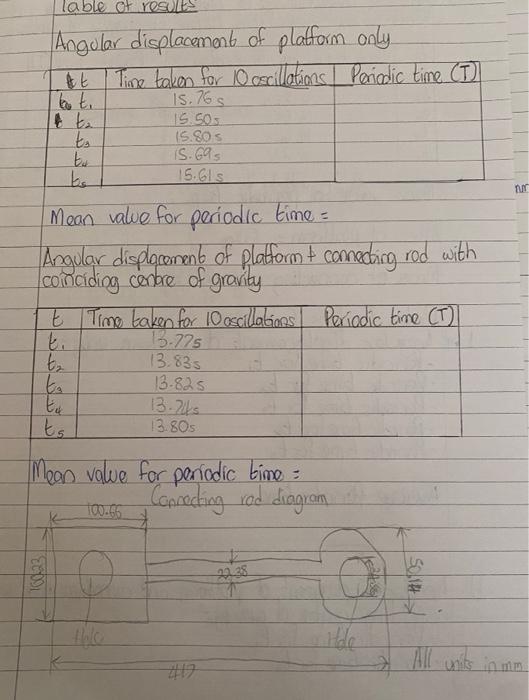 Table of results
Angular displacement of platform only
t Time taken for 10 oscillations Periodic time (T)
t₁ 15.76s
t₂ 15.50s
t₃ 15.80s
t₄ 15.69s
t₅ 15.61s
Mean value for periodic time =
Angular displacement of platform + connecting rod with
coinciding centre of gravity
t Time taken for 10 oscillations Periodic time (T)
t₁ 13.77s
t₂ 13.83s
t₃ 13.82s
t₄ 13.74s
t₅ 13.80s
Mean value for periodic time =
Connecting rod diagram
100.66
100.23
22.38
Hole
Hole
417
All units in mm